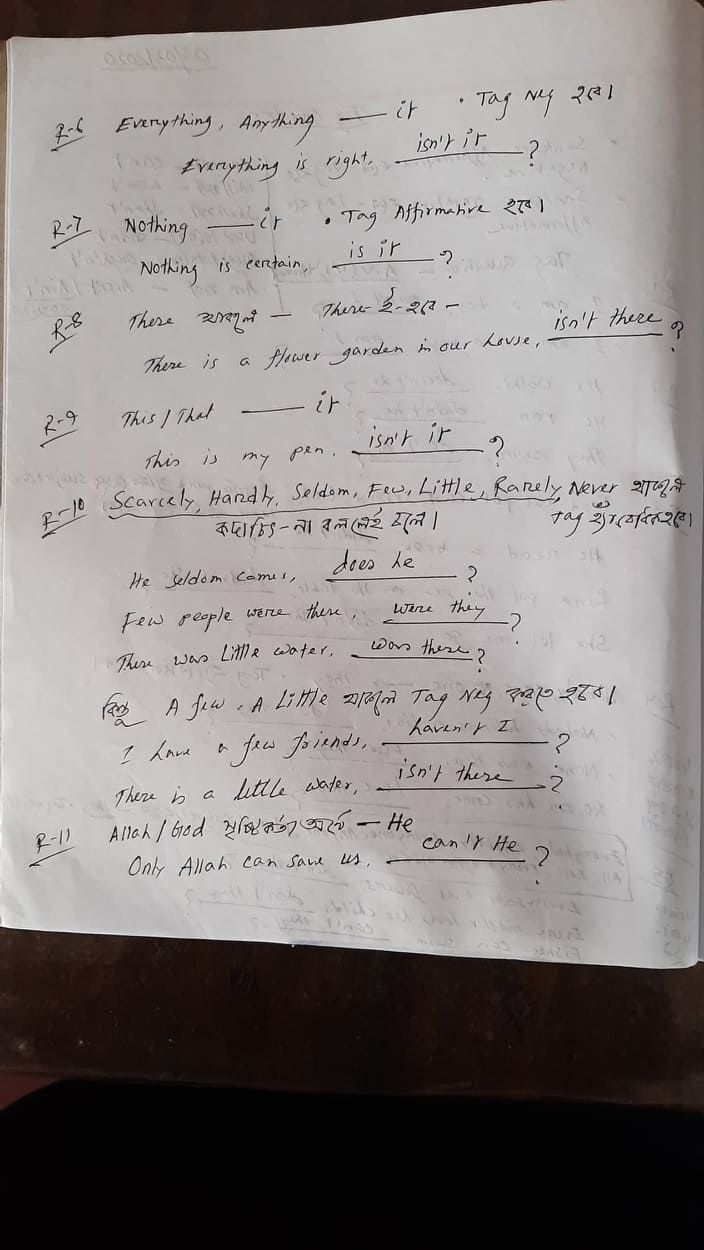 R-6 Everything, Anything — it • Tag Neg হবে।
Everything is right, isn't it ?
R-7 Nothing — it • Tag Affirmative হবে।
Nothing is certain, is it ?
R-8 There থাকলে — There-ই-হবে –
There is a flower garden in our house, isn't there ?
R-9 This/That — it
This is my pen. isn't it ?
R-10 Scarcely, Hardly, Seldom, Few, Little, Rarely, Never থাকলে
কদাচিৎ-না বললেই চলে। Tag হ্যাঁবোধক হবে।
He seldom comes, does he ?
Few people were there, were they ?
There was Little water, was there ?
কিন্তু A few, A Little থাকলে Tag Neg করতে হবে।
I have a few friends, haven't I ?
There is a little water, isn't there ?
R-11 Allah/God সৃষ্টিকর্তা অর্থে — He
Only Allah can save us, can't He ?